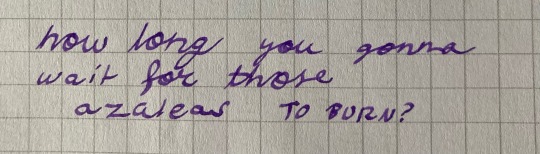 how long you gonna
wait for those
azaleas TO BURN?